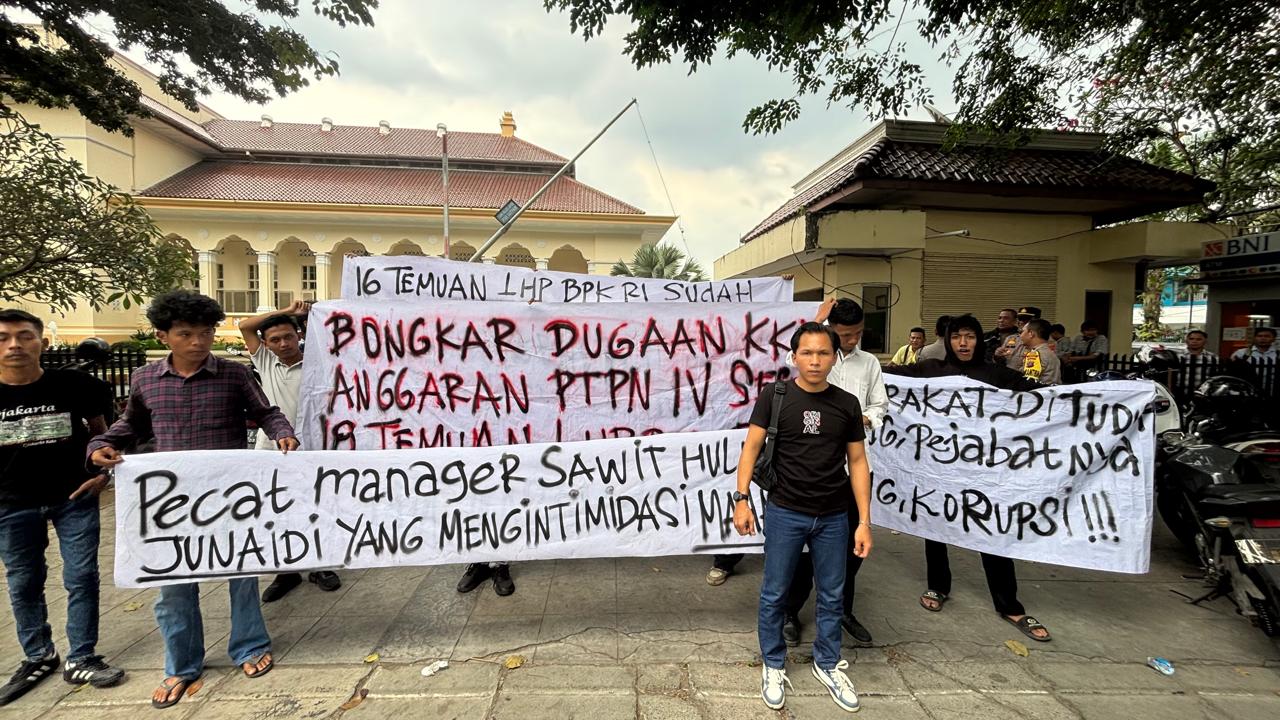 16 TEMUAN LHP BPK RI SUDAH
BONGKAR DUGAAN KK
ANGGARAN PTPN IV SE
18 TEMUAN LHP
Pecat manager SAWIT HUL
JUNAIDI YANG MENGINTIMIDASI MA
RAKAT DI TUDI
G, PejabatNya
NG, KORUPSI!!!
BNI
Jakarta
OR
GIN
AL